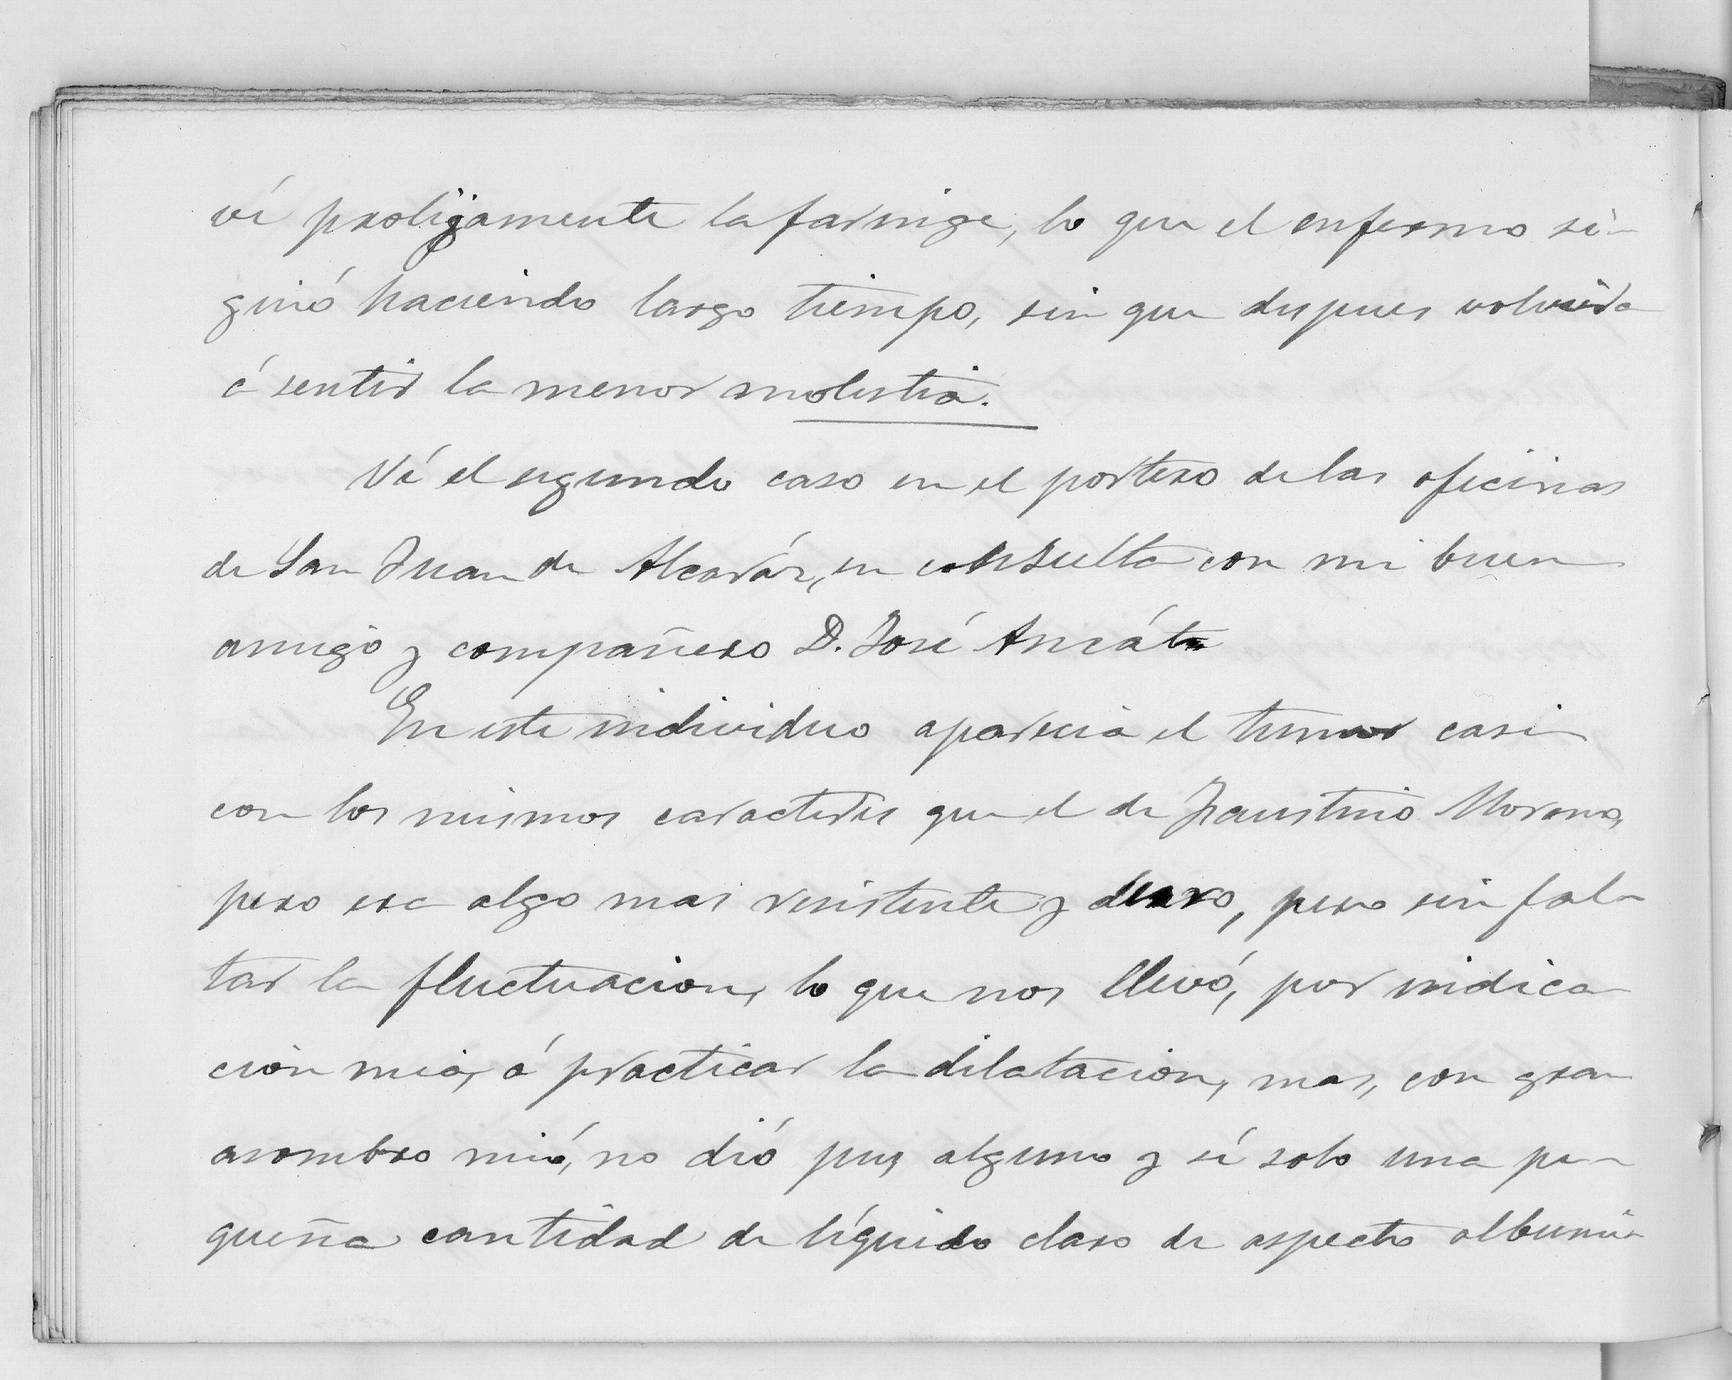 ví prolijamente la farinige, lo que el enfermo si-
guió haciendo largo tiempo, sin que despues volviera
á sentir la menor molestia.
Ví el segundo caso en el portero de las oficinas
de San Juan de Alcaráz, en consulta con mi buen
amigo y compañero D. José
En este individuo aparecia el tumor casi
con los mismos caracteres que el de Faustino Moreno,
pero era algo mas resistente y duro, pero sin fal-
tar la fluctuacion, lo que nos llevó, por indica
ción mia, á practicar la dilatacion, mas, con gran
asombro mió, no dió pus alguno y sí solo una pe-
queña cantidad de líquido claro de aspecto albumi-